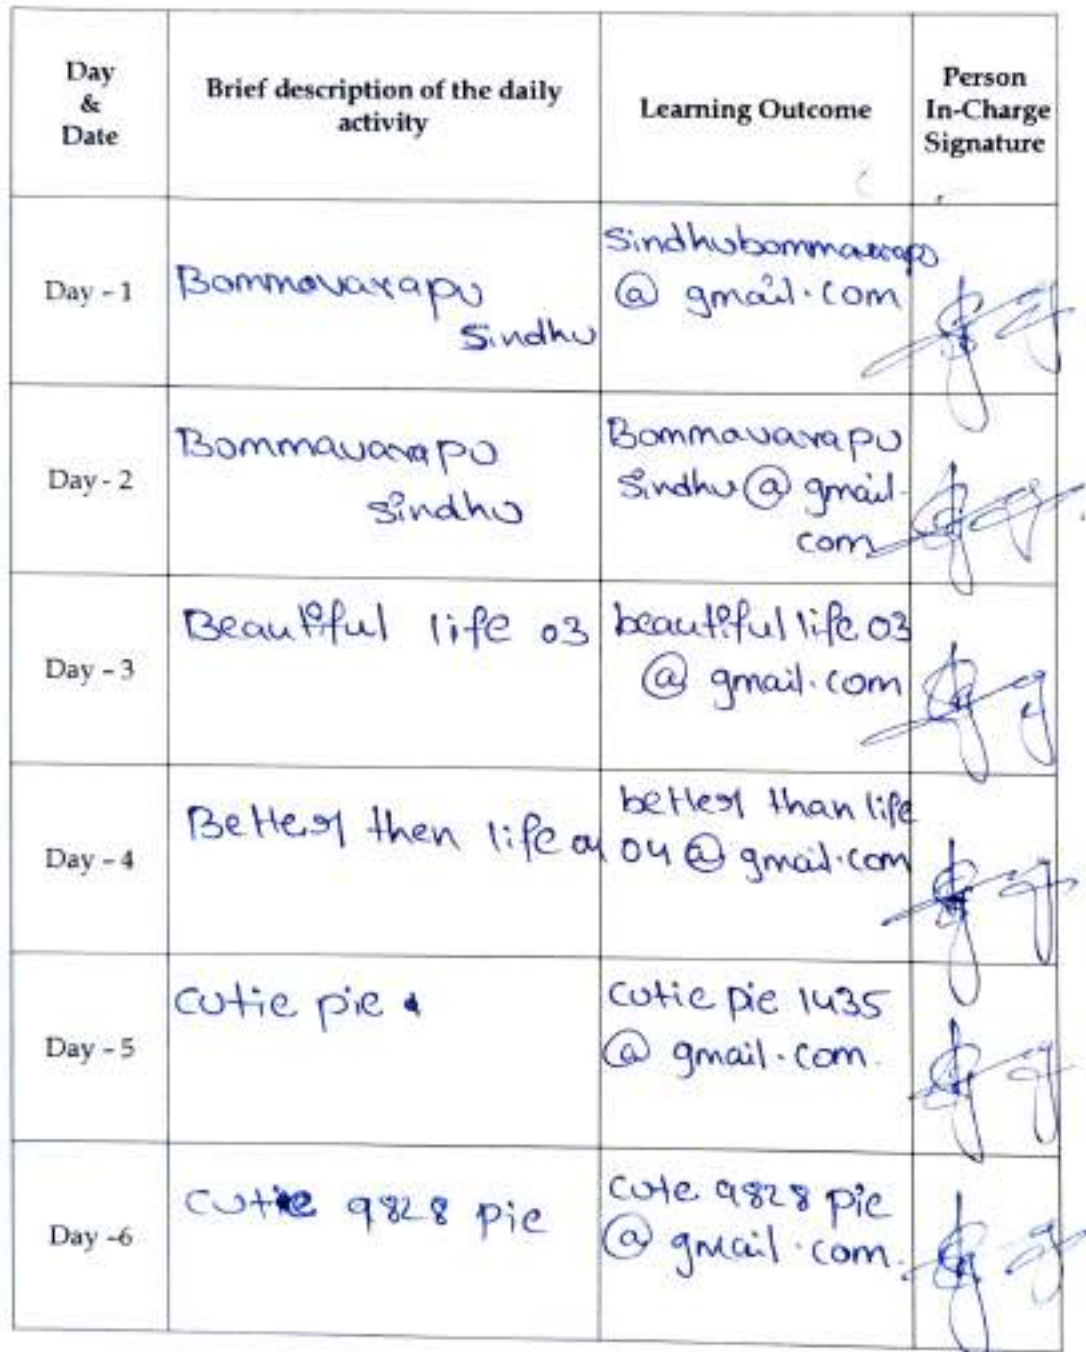 Day
&
Date
Brief description of the daily
activity
Learning Outcome
Person
In-Charge
Signature
Day - 1
Bommavarapu
Sindhu
Sindhubommavarapu
@ gmail.com
Day - 2
Bommavarapu
Sindhu
Bommavarapu
Sindhu @ gmail.
com
Day - 3
Beautiful life 03
beautiful life 03
@ gmail.com
Day - 4
Better then life 04
better than life
04 @ gmail.com
Day - 5
cutie pie
cutie pie 1435
@ gmail.com.
Day -6
cutie 9828 pie
cute 9828 pie
@ gmail.com.